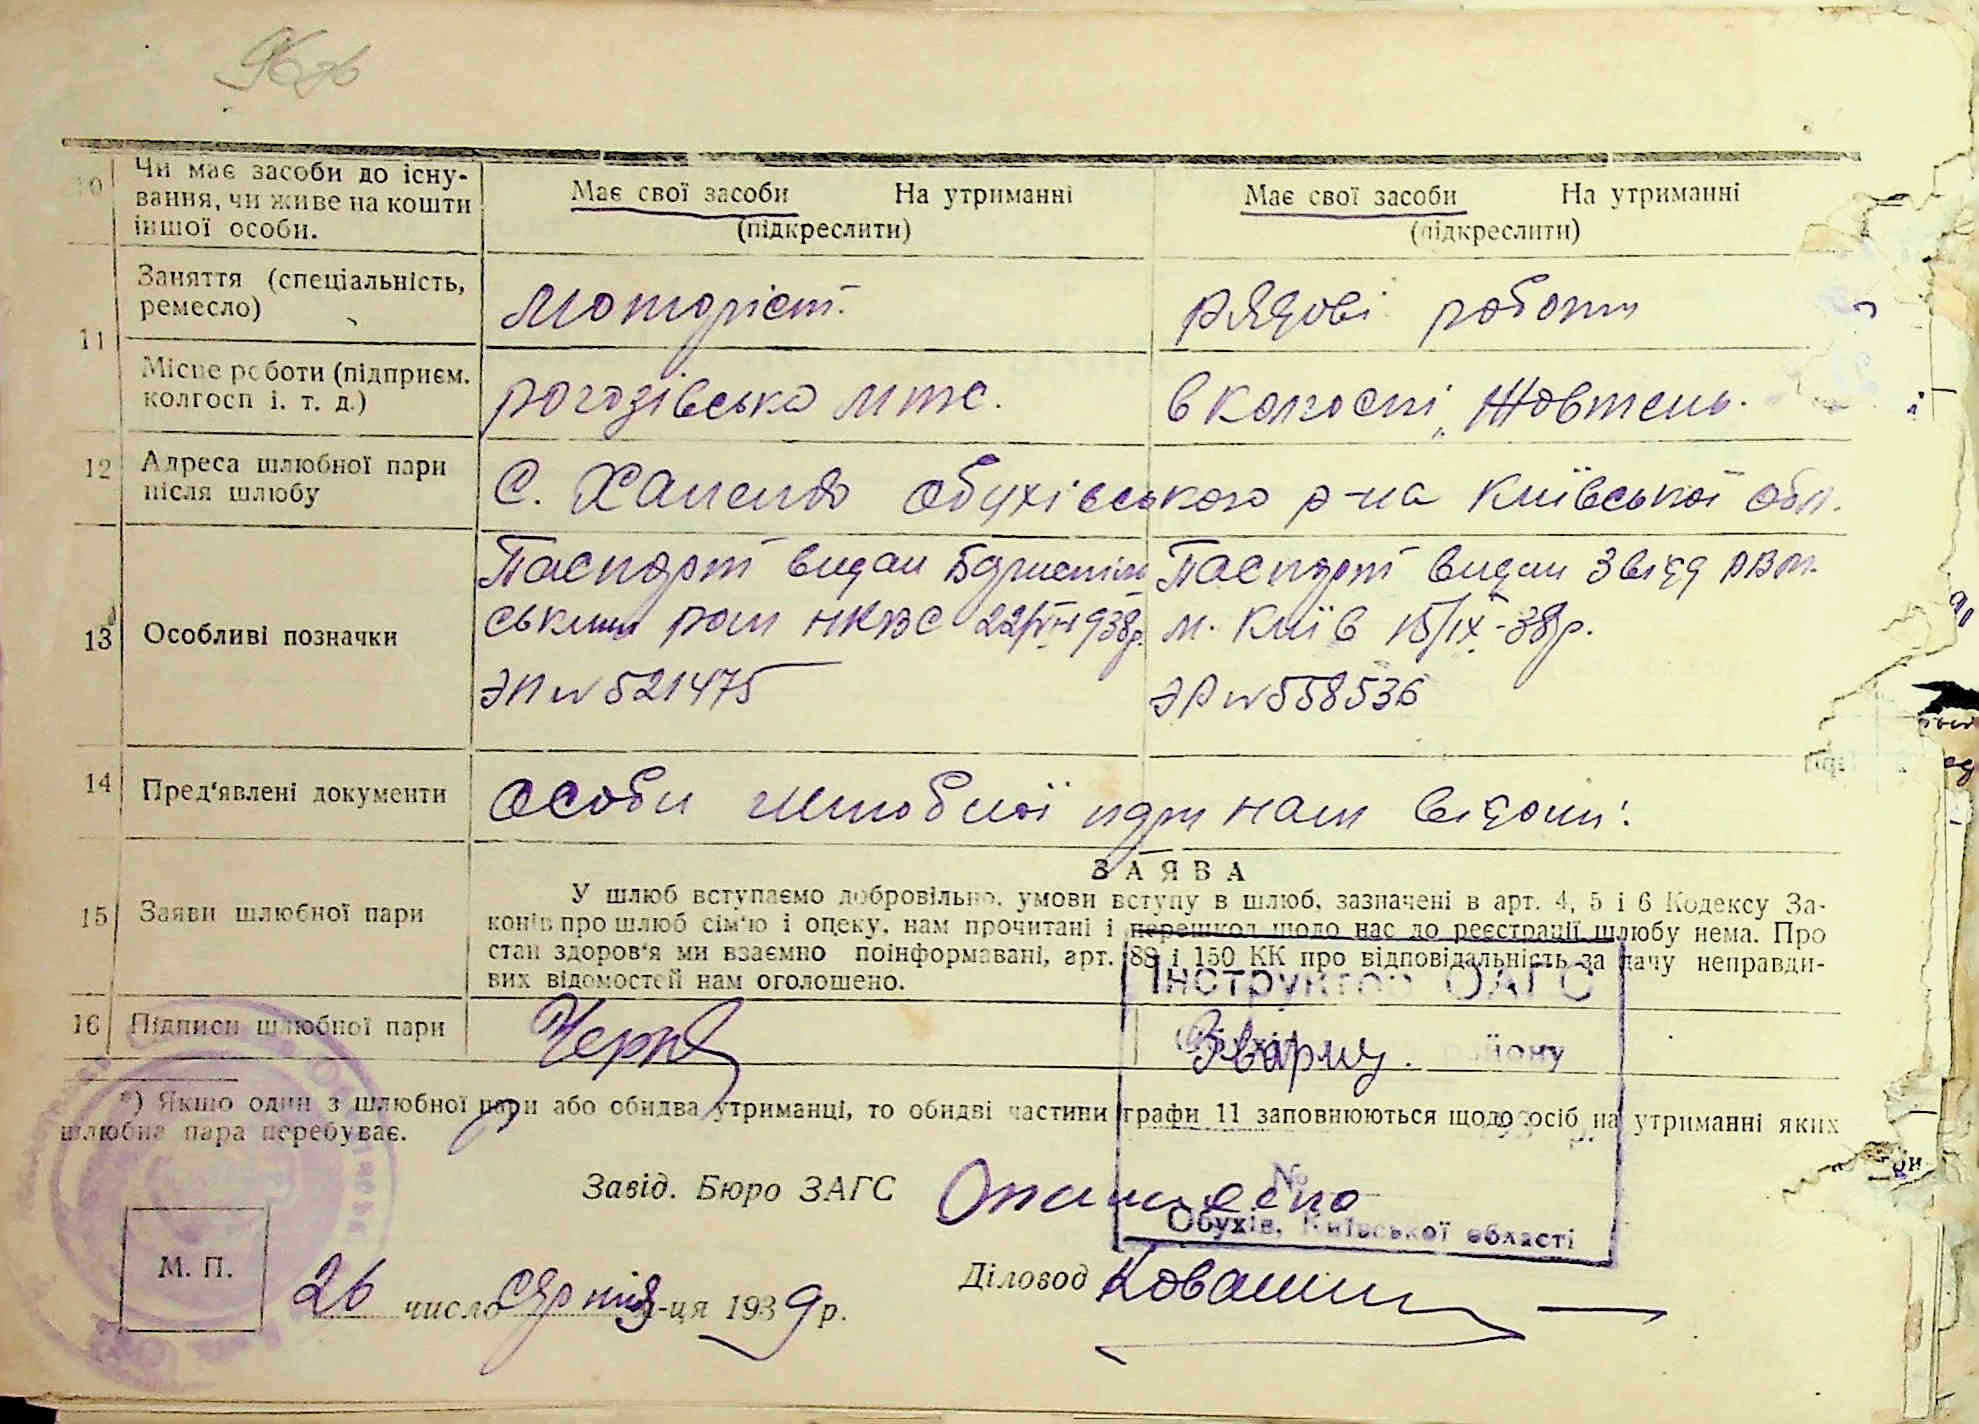 10 Чи має засоби до існу-
вання, чи живе на кошти
іншої особи.
Має свої засоби На утриманні
(підкреслити)
Має свої засоби На утриманні
(підкреслити)
11 Заняття (спеціальність,
ремесло)
Моторіст.
рядові роботи
Місце роботи (підприєм.
колгосп і. т. д.)
рогозівська мтс.
в колгоспі „Жовтень.
12 Адреса шлюбної пари
після шлюбу
С. Халепʼя Обухівського р-на Київської обл.
13 Особливі позначки
Паспорт видан Бориспіль
ським ром НКВС 22/VII 1938р.
ЭП № 521475
Паспорт видан 3 від РВм.
м. Київ 15/IX-38р.
ЭР № 558536
14 Пред'явлені документи
Особи шлюбної пари нам відомі.
15 Заяви шлюбної пари
ЗАЯВА
У шлюб вступаємо добровільно. умови вступу в шлюб, зазначені в арт. 4, 5 і 6 Кодексу За-
конів про шлюб сім'ю і опеку, нам прочитані і перешкод щодо нас до реєстрації шлюбу нема. Про
стан здоров'я ми взаємно поінформавані, арт. 88 і 150 КК про відповідальність за дачу неправди-
вих відомостей нам оголошено.
Інструктор ОАГС
16 Підписи шлюбної пари
району
*) Якшо один з шлюбної пари або обидва утриманці, то обидві частини графи 11 заповнюються щодо осіб на утриманні яких
шлюбна пара перебуває.
193 р.
№
Завід. Бюро ЗАГС
Обухів, Київської області
М. П.
Діловод
26 число серпня м-ця 1939 р.